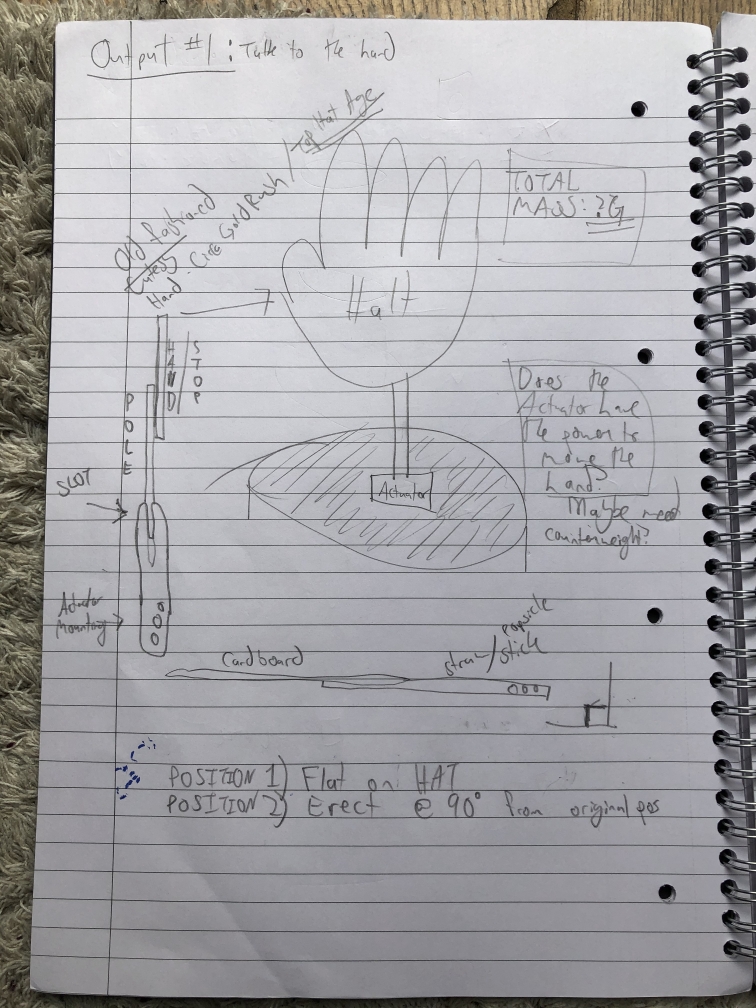 Output #1: Talk to the hand
Old Fashioned / Top Hat Age
Hand. Circa Gold Rush
TOTAL
MASS: ?G
Halt
HAND / STOP
POLE
SLOT
Does the
Actuator have
the power to
move the
hand?
Maybe need
counterweight?
Actuator
Actuator
Mounting
Cardboard
straw / popsicle
stick
POSITION 1) Flat on HAT
POSITION 2) Erect @ 90° from original pos